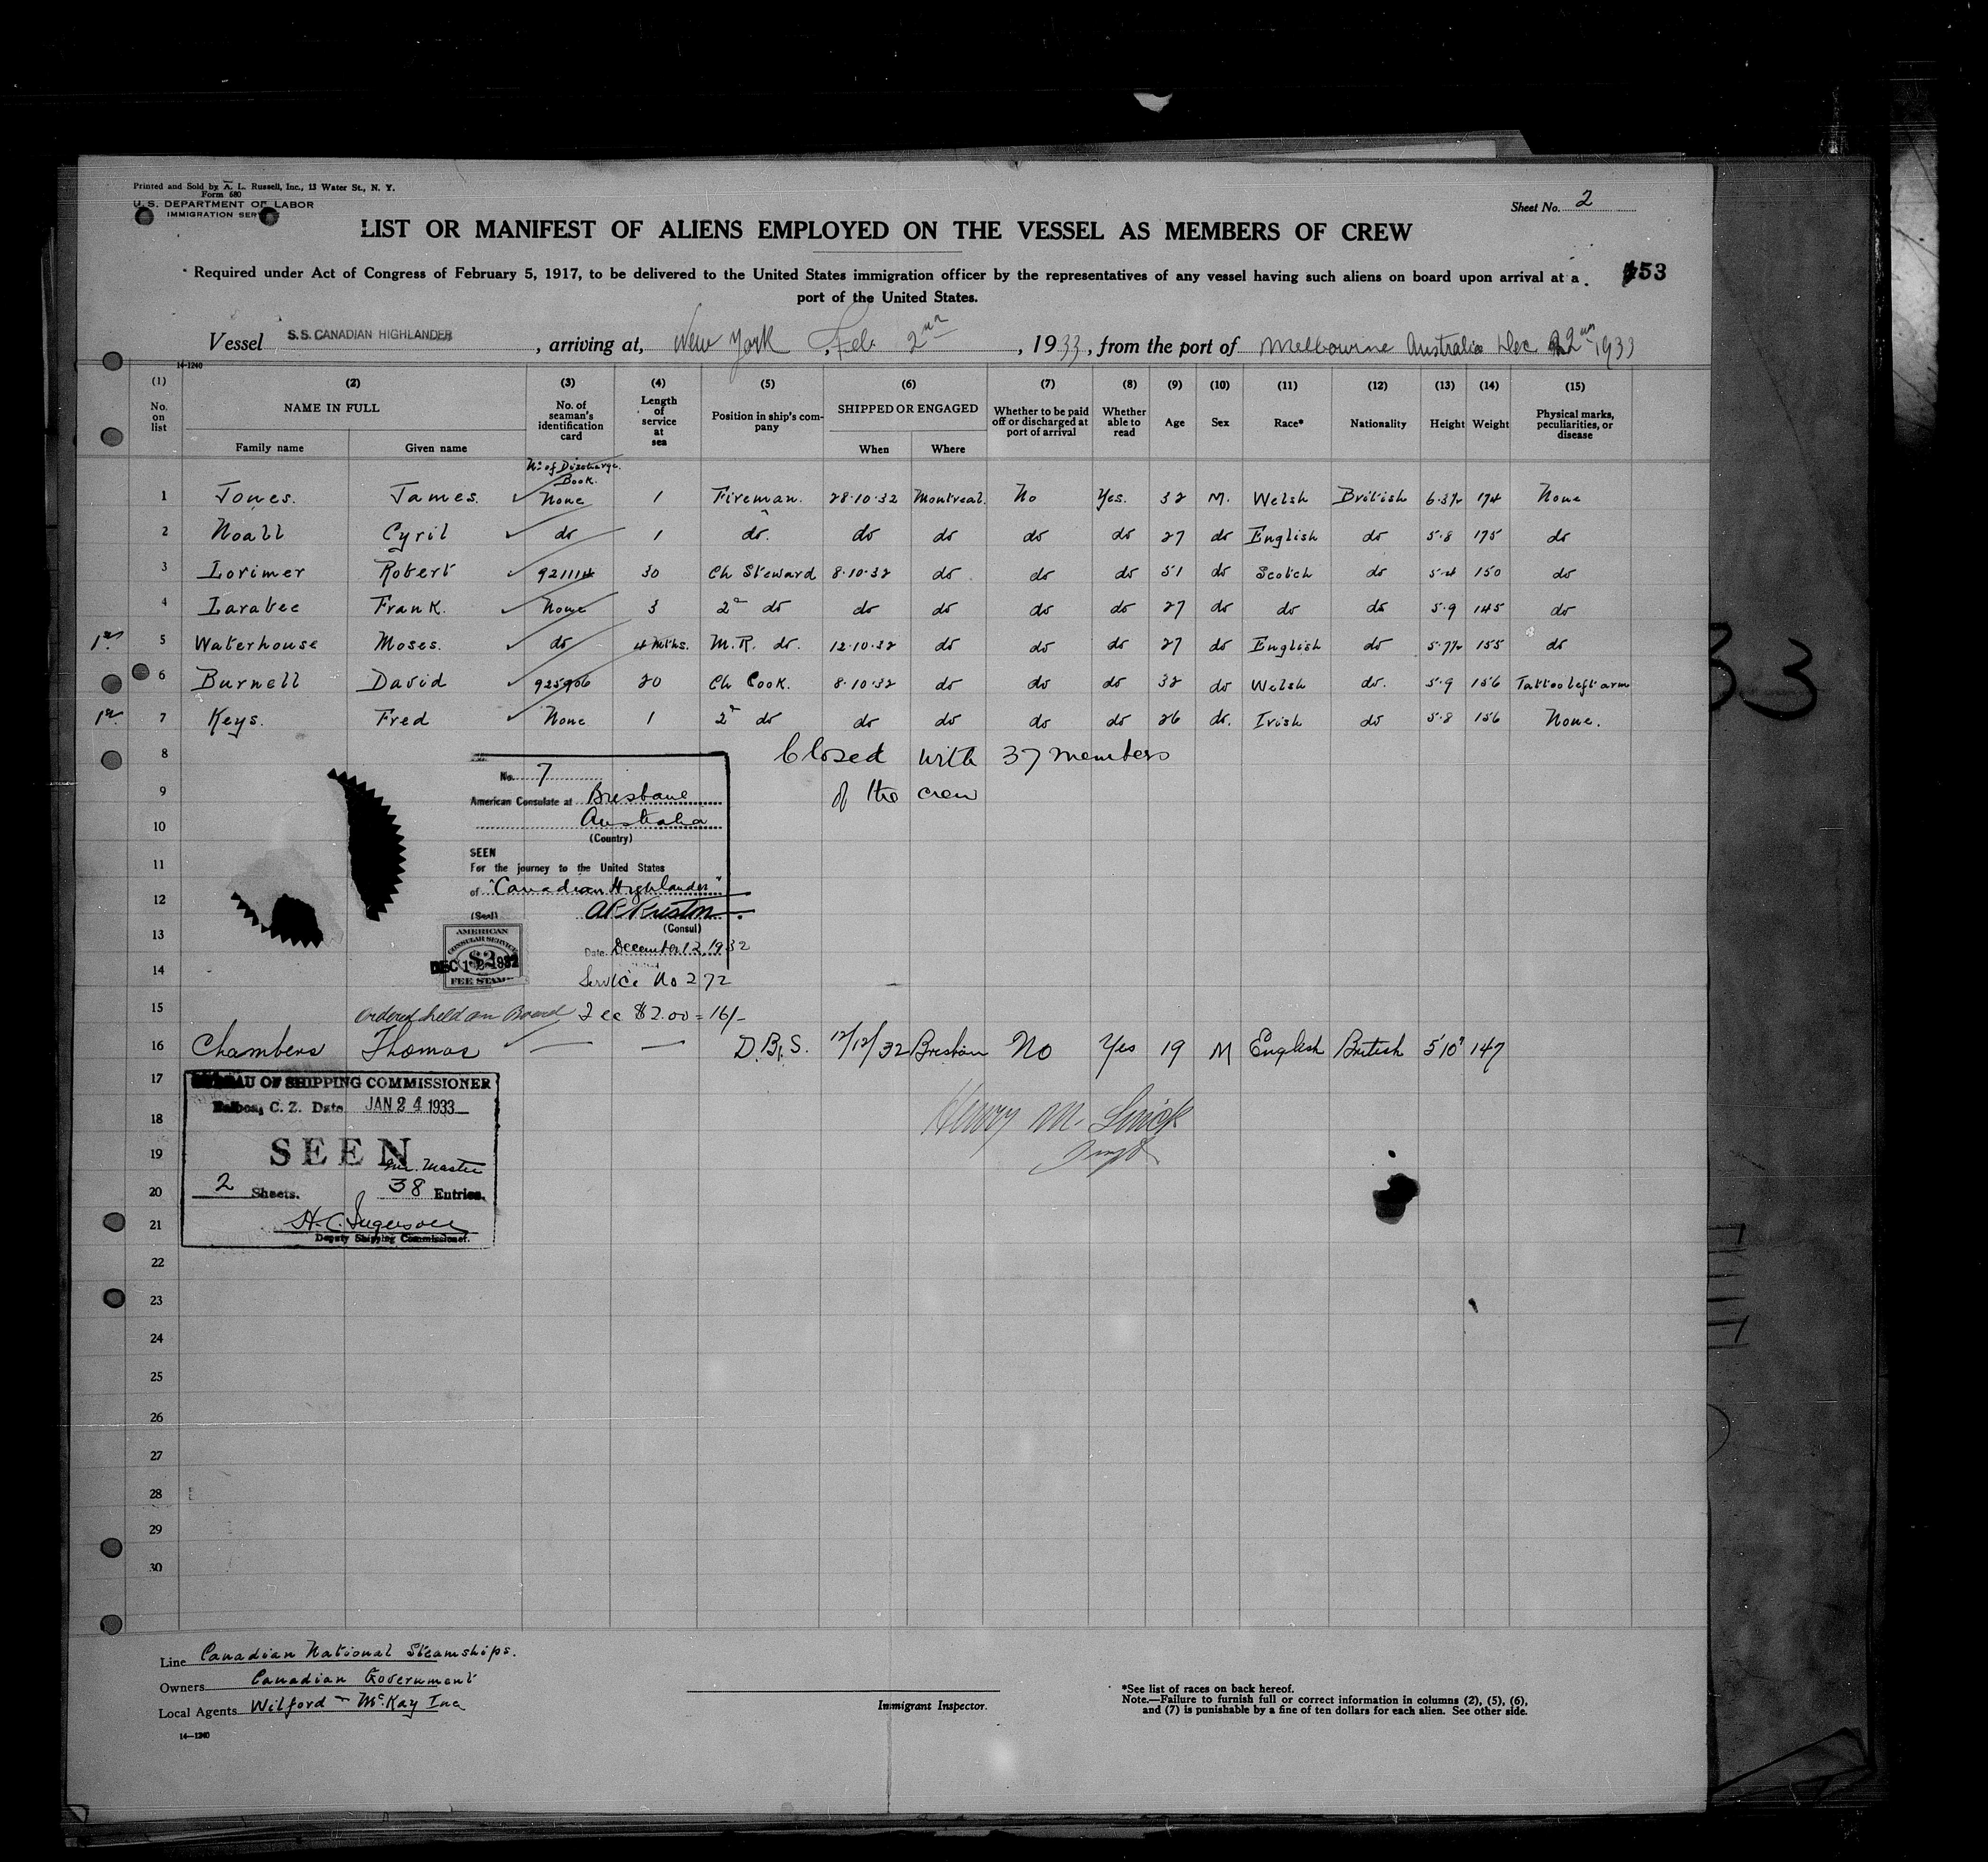 Printed and Sold by A. L. Russell, Inc., 13 Water St., N. Y.
Form 680
U. S. DEPARTMENT OF LABOR
IMMIGRATION SERV
Sheet No. 2
LIST OR MANIFEST OF ALIENS EMPLOYED ON THE VESSEL AS MEMBERS OF CREW
Required under Act of Congress of February 5, 1917, to be delivered to the United States immigration officer by the representatives of any vessel having such aliens on board upon arrival at a
port of the United States.
53
Vessel S.S. CANADIAN HIGHLANDER, arriving at, New York, Feb. 2nd, 1933, from the port of Melbourne Australia Dec 22nd 1933
14-1240
(1) (2) (3) (4) (5) (6) (7) (8) (9) (10) (11) (12) (13) (14) (15)
No. on list NAME IN FULL Family name Given name No. of seaman's identification card Length of service at sea Position in ship's company SHIPPED OR ENGAGED When Where Whether to be paid off or discharged at port of arrival Whether able to read Age Sex Race* Nationality Height Weight Physical marks, peculiarities, or disease
No. of Discharge Book.
1 Jones. James. None 1 Fireman. 28.10.32 Montreal. No Yes. 32 M. Welsh British 6.3½ 174 None
2 Noall Cyril do 1 do. do do do do 27 do English do 5.8 175 do
3 Lorimer Robert 921114 30 Ch Steward 8.10.32 do do do 51 do Scotch do 5.4 150 do
4 Larabee Frank. None 3 2nd do do do do do 27 do do do 5.9 145 do
5 Waterhouse Moses. do 4 Mths. M.R. do. 12.10.32 do do do 27 do English do 5.7½ 155 do
6 Burnell David 925906 20 Ch Cook. 8.10.32 do do do 32 do Welsh do. 5.9 156 Tattoo left arm
7 Keys. Fred None 1 2nd do do do do do 26 do. Irish do 5.8 156 None.
8 Closed with 37 members
9 of the crew
No. 7
American Consulate at Brisbane
10 Australia
(Country)
11 SEEN
For the journey to the United States
of "Canadian Highlander"
12 (Seal) (Consul)
13 AMERICAN CONSULAR SERVICE $2 FEE STAMP
Date December 12, 1932
DEC 12 1932
14 Service No 272
15 Ordered held on Board Fee $2.00 = 16/-
16 Chambers Thomas — — D.B.S. 12/12/32 Brisbane No Yes 19 M English British 5'10" 147
17 BUREAU OF SHIPPING COMMISSIONER
Balboa, C. Z. Date JAN 24 1933
18 Henry M.
19 SEEN
Inc. Master
20 2 Sheets. 38 Entries.
21 H.C. Ingersoll
Deputy Shipping Commissioner.
22
23
24
25
26
27
28
29
30
Line Canadian National Steamships.
Owners Canadian Government
Local Agents Wilford - McKay Inc
14—1240
Immigrant Inspector.
*See list of races on back hereof.
Note.—Failure to furnish full or correct information in columns (2), (5), (6),
and (7) is punishable by a fine of ten dollars for each alien. See other side.